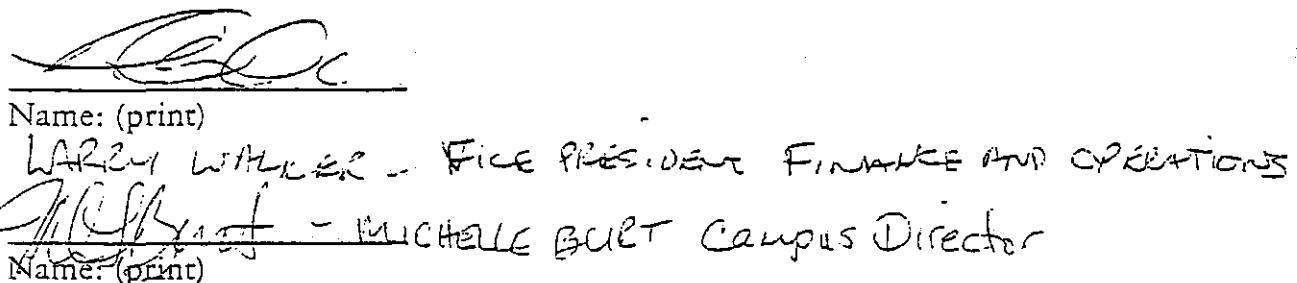 Name: (print)
LARRY WALKER - VICE PRESIDENT FINANCE AND OPERATIONS
- MICHELLE BURT Campus Director
Name: (print)